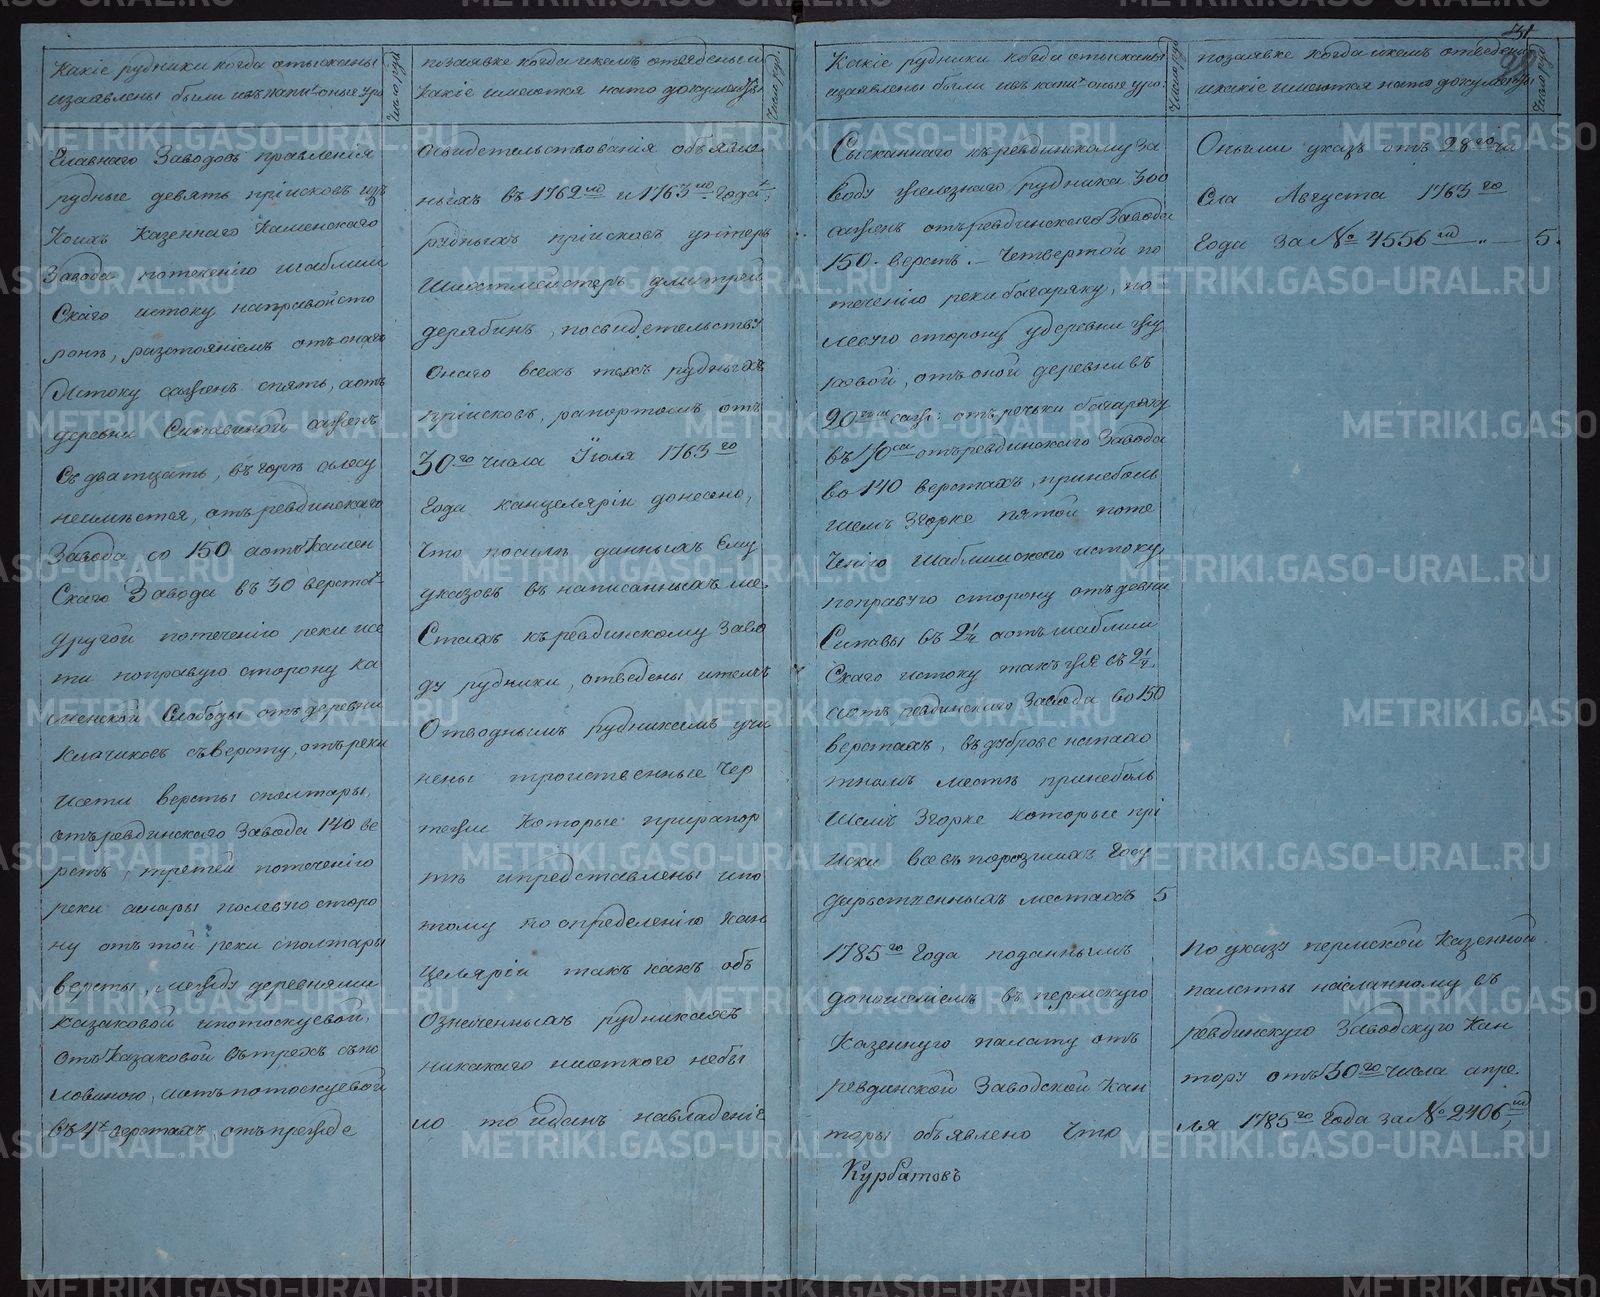 Какіе рудники когда отысканы
изаявлены были ивъ какихъ оные уро
Число руд
позаявке когда икемъ отведены и
Какіе имеются нато документы
Число руд.
Главнаго Заводовъ правленія
рудные девять пріисковъ изъ
Коихъ Казеннаго Каменскаго
Завода потеченію шаблиш
Скаго истоку направой сто
роне, разстояніемъ отъонаго
Истоку сажень спять, аотъ
деревни Сипавиной сажень
Съ дватцать, въ горе олесу
неимѣется, отъревдинскаго
Завода во 150 аотъ Камен
Скаго Завода въ 30 верстахъ
Другой потеченію реки исе
ти поправую сторону Ка
менской Слободы отъ деревни
Ключиковъ съ Версту, отъ реки
Исети версты сполтары,
отъревдинскаго Завода 140 ве
рстъ, третей потеченію
реки синары полевую сторо
ну отъ той реки сполтары
Версты, между деревнями
Казаковой ипотоскуевой,
Отъ Казаковой Въ трехъ съпо
ловиною, иотъ потоскуевой
Въ 4хъ верстахъ, отъ прежде
Освидетельствованія объявле
ныхъ въ 1762мъ и 1763мъ годахъ
рудныхъ пріисковъ унтеръ
Шихтмейстеръ дмитрей
дерябинъ, посвидетельству
Онаго всехъ техъ рудныхъ
пріисковъ, рапортомъ отъ
30го числа Іюля 1763го
Года канцеляріи донесено,
Что посиле данныхъ Ему
указовъ въ написанныхъ ме
Стахъ къревдинскому Заво
ду рудники, отведены итемъ
Отводнымъ рудникамъ учи
нены троиственные Чер
тежи Которые прирапор
те ипредставлены ипо
тому по определенію Кан
Целяріи такъ какъ объ
Означенныхъ рудникахъ
никакаго ниоткого небы
ло то иданъ навладеніе
Какіе рудники когда отысканы
изаявлены были ивъ какихъ оные уро:
Число руд
позаявке когда икемъ отведены
икакіе имеются нато документы
Число руд
31
Сысканнаго къревдинскому За
воду железнаго рудника 300
сажень отъревдинскаго Завода
150. верстъ. — Четвертой по
теченію реки багаряку, по
левую сторону у деревни жу
ковой, отъ оной деревни въ
20ти саж: отъ речьки багаряку
въ 70 са отъревдинскаго Завода
во 140 верстахъ, принеболь
шемъ Згорке пятой поте
Ченію шаблишскаго истоку
поправую сторону отъ девни
Сипавы въ 2 1/2 аотъ шаблиш
Скаго истоку такъ же въ 2 1/2.
аотъ ревдинскаго Завода во 150
верстахъ, въ дуброве напахо
тномъ месте принеболь
Шемъ Згорке Которые прі
иски все въ порозжихъ Госу
дарьственныхъ местахъ 5
1785го Года поданнымъ
доношеніемъ въ пермскую
Казенную палату отъ
ревдинской Заводской кан
торы объявлено Что
Курбатовъ
Оными указъ отъ 28го чи
Сла Августа 1763го
Года За № 4556мъ — " — 5.
По указу пермской Казенной
палаты насланному въ
ревдинскую Заводскую Кан
тору отъ 30го числа апре.
ля 1785го Года за № 2406мъ,